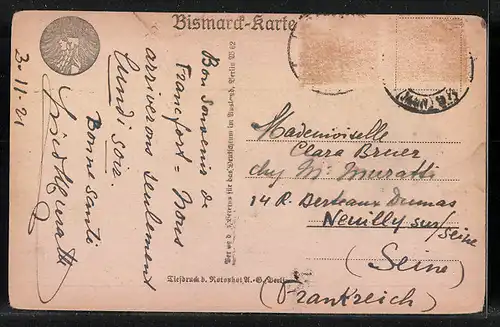 Bismarck-Karte
3.-11-21
Bon Souvenir de
Francfort = Nous
arriverons seulement
lundi soir
Bonne santé
Verlag d. Vereins für das Deutschtum im Ausland, Berlin W 62
Tiefdruck d. Rotophot A.-G. Berlin
Mademoiselle
Clara Bruer
chez Mr Muratti
14 R. Berteaux Dumas
Neuilly sur/Seine
(Seine)
(Frankreich)